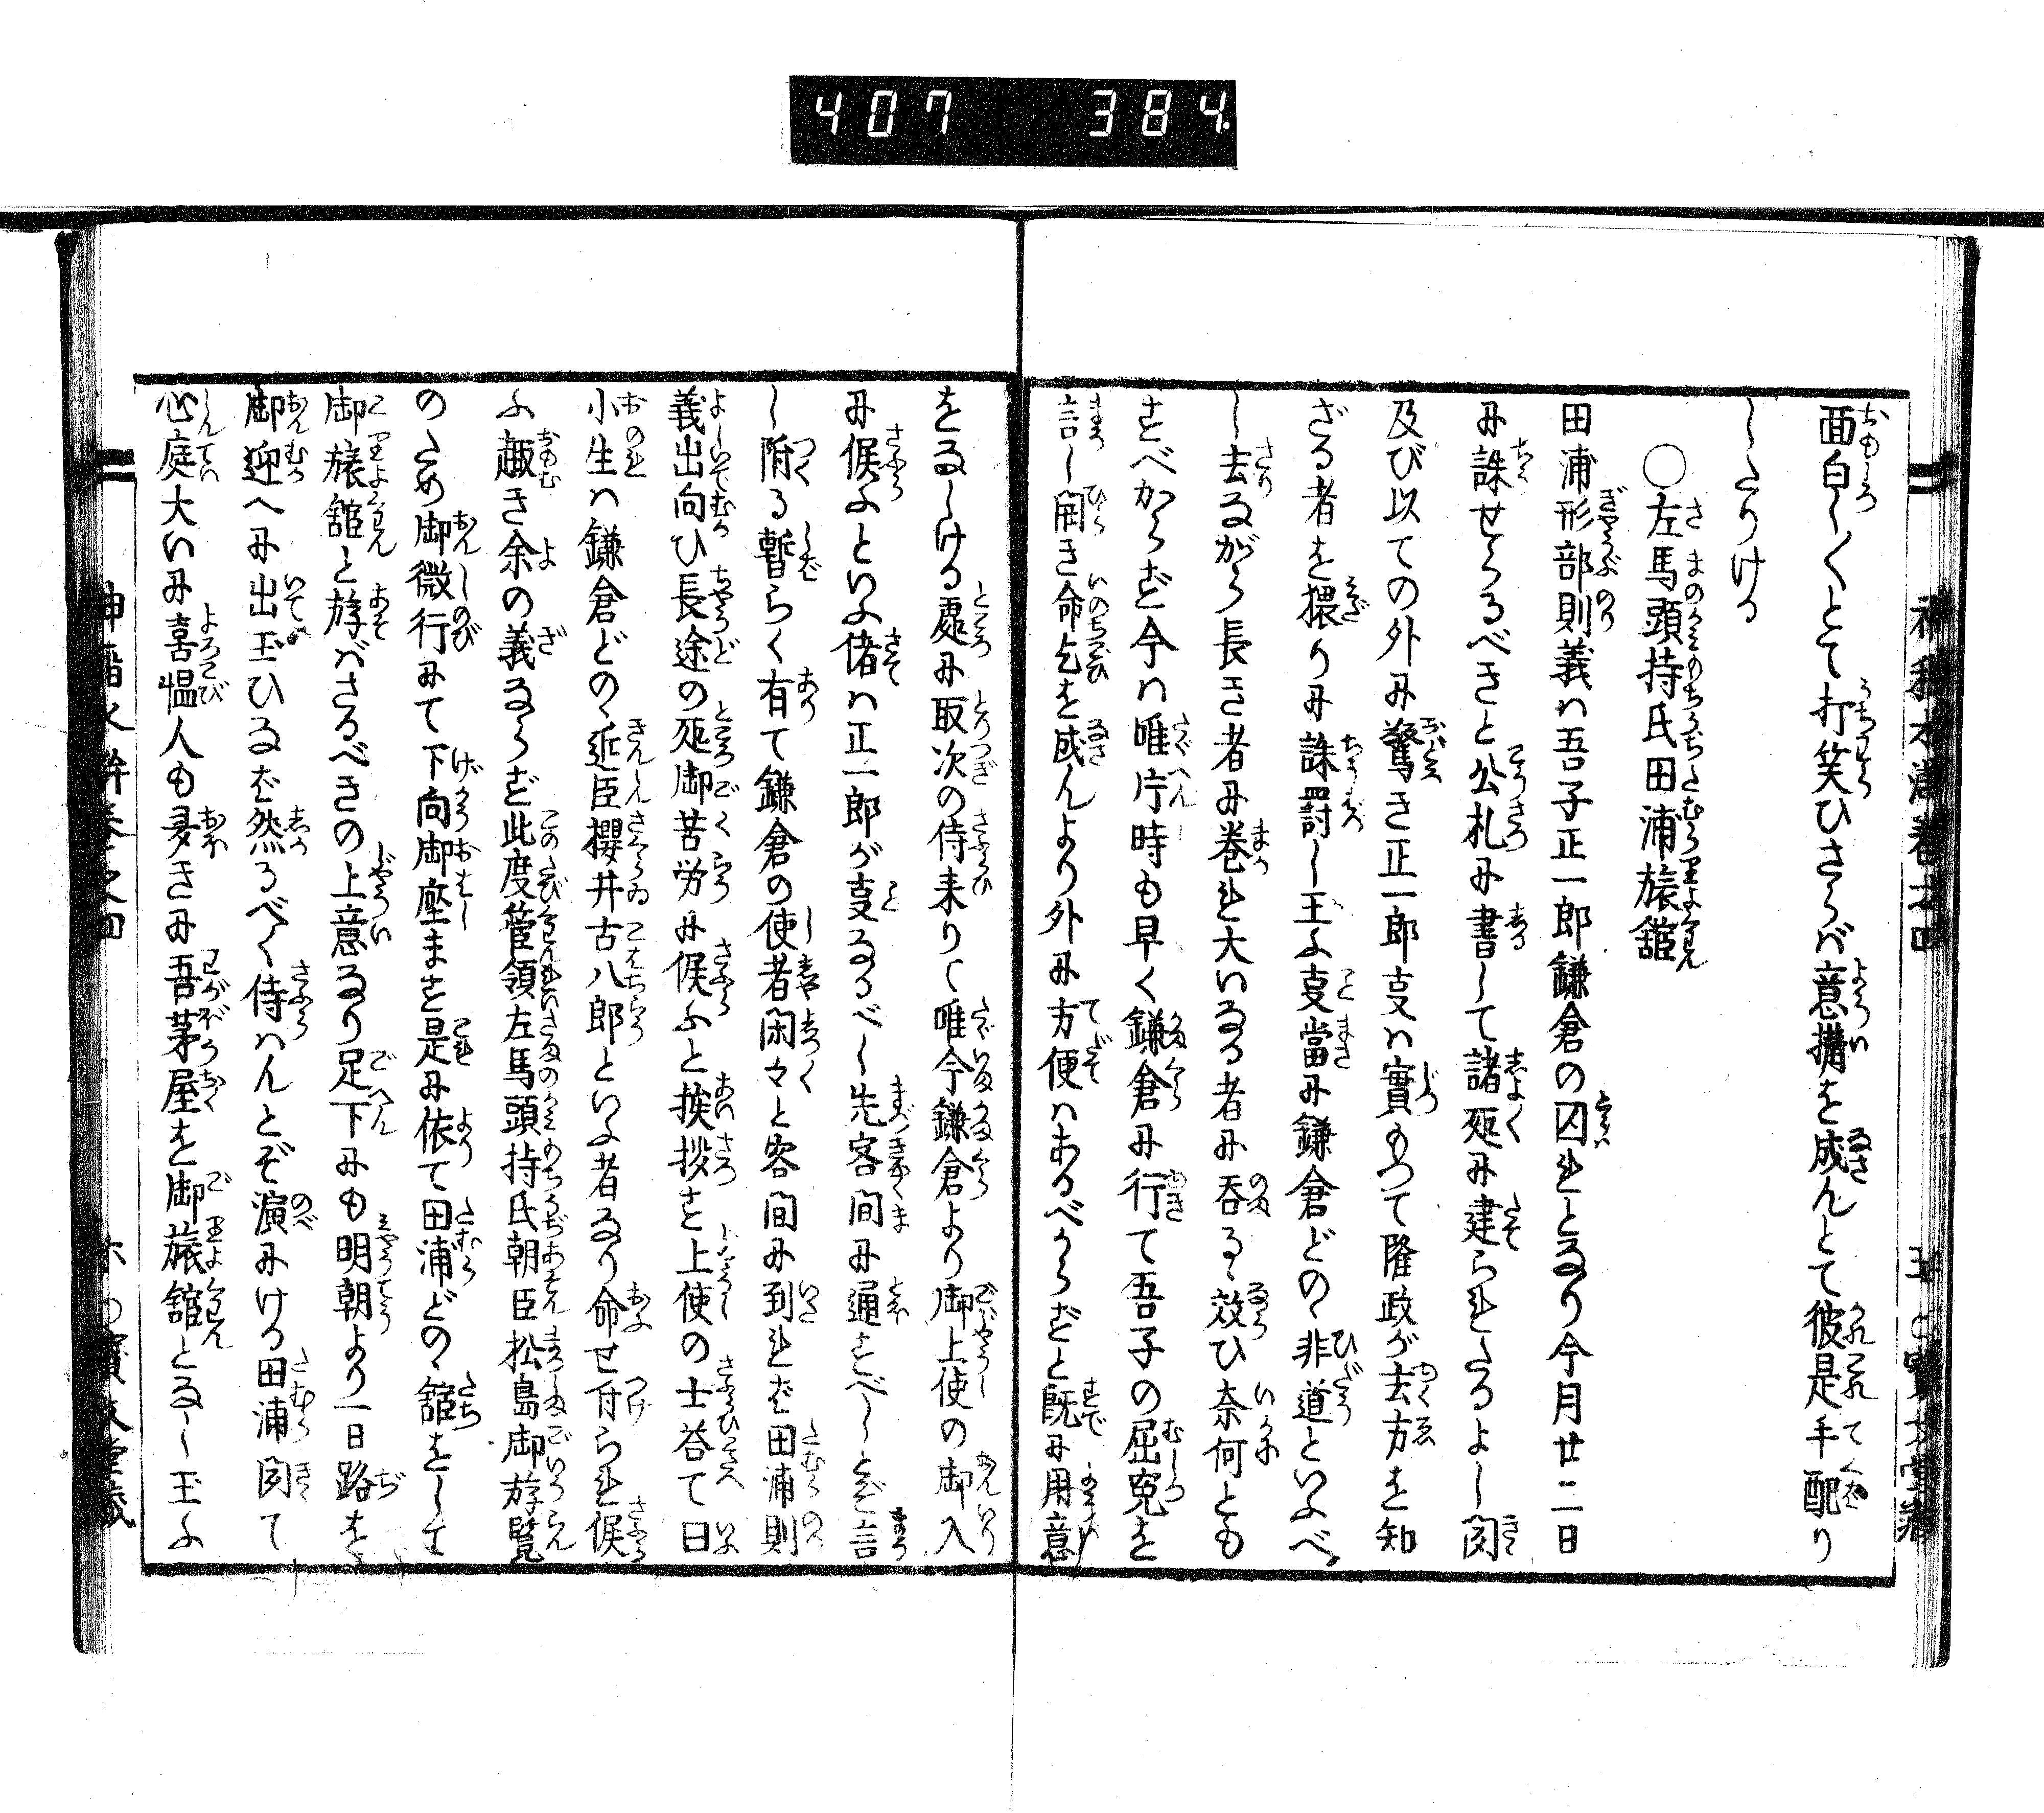 407 384
面白し〳〵とて打笑ひさらバ意搆を成んとて彼是手配り
したりける
〇左馬頭持氏田浦旅舘
田浦形部則義ハ吾子正一郎鎌倉の囚れとなり今月廿二日
に誅せらるべきと公札に書して諸所に建られたるよし聞
及び以ての外に驚き正一郎事ハ實もつて隆政が去方を知
ざる者を猥りに誅罸し玉ふ事當に鎌倉どのゝ非道といふべ
し去ながら長き者に巻れ大いなる者に呑るゝ效ひ奈何とも
すべからず今ハ唯片時も早く鎌倉に行て吾子の屈寃を
言し開き命乞を成んより外に方便ハあるべからずと既に用意
をなしける處に取次の侍来りて唯今鎌倉より御上使の御入
に候ふといふ偖ハ正一郎が事なるべし先客間に通すべしとぞ言
し附る暫らく有て鎌倉の使者閑々と客間に到れバ田浦則
義出向ひ長途の所御苦労に候ふと挨拶す上使の士答て曰
小生ハ鎌倉どのゝ近臣櫻井古八郎といふ者なり命せ付られ候
ふ趣き余の義ならず此度管領左馬頭持氏朝臣松島御游覧
のため御微行にて下向御座ます是に依て田浦どのゝ舘をして
御旅舘と游バさるべきの上意なり足下にも明朝より一日路を
御迎へに出玉ひなバ然るべく侍ハんとぞ演にける田浦聞て
心庭大いに喜愠人も多きに吾茅屋を御旅舘となし玉ふ